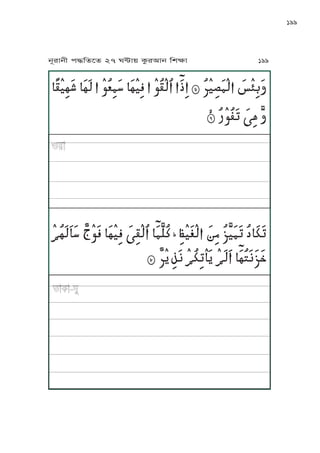 ১৯৯
নূরানী পদ্ধতিতে ২৭ ঘণ্টায় কুরআন শিক্ষা ১৯৯
وَبِئْسَ الْمَصِيْرُ ۝ اِذَاۤ اُلْقُوْا فِيْهَا سَمِعُوْا لَهَا شَهِيْقًا
وَّ هِىَ تَفُوْرُ ۝
ওয়া
تَكَادُ تَمَيَّزُ مِنَ الْغَيْظِ ؕ كُلَّمَاۤ اُلْقِىَ فِيْهَا فَوْجٌ سَاَلَهُمْ
خَزَنَتُهَاۤ اَلَمْ يَاْتِكُمْ نَذِيْرٌ ۝
তাকা-দু